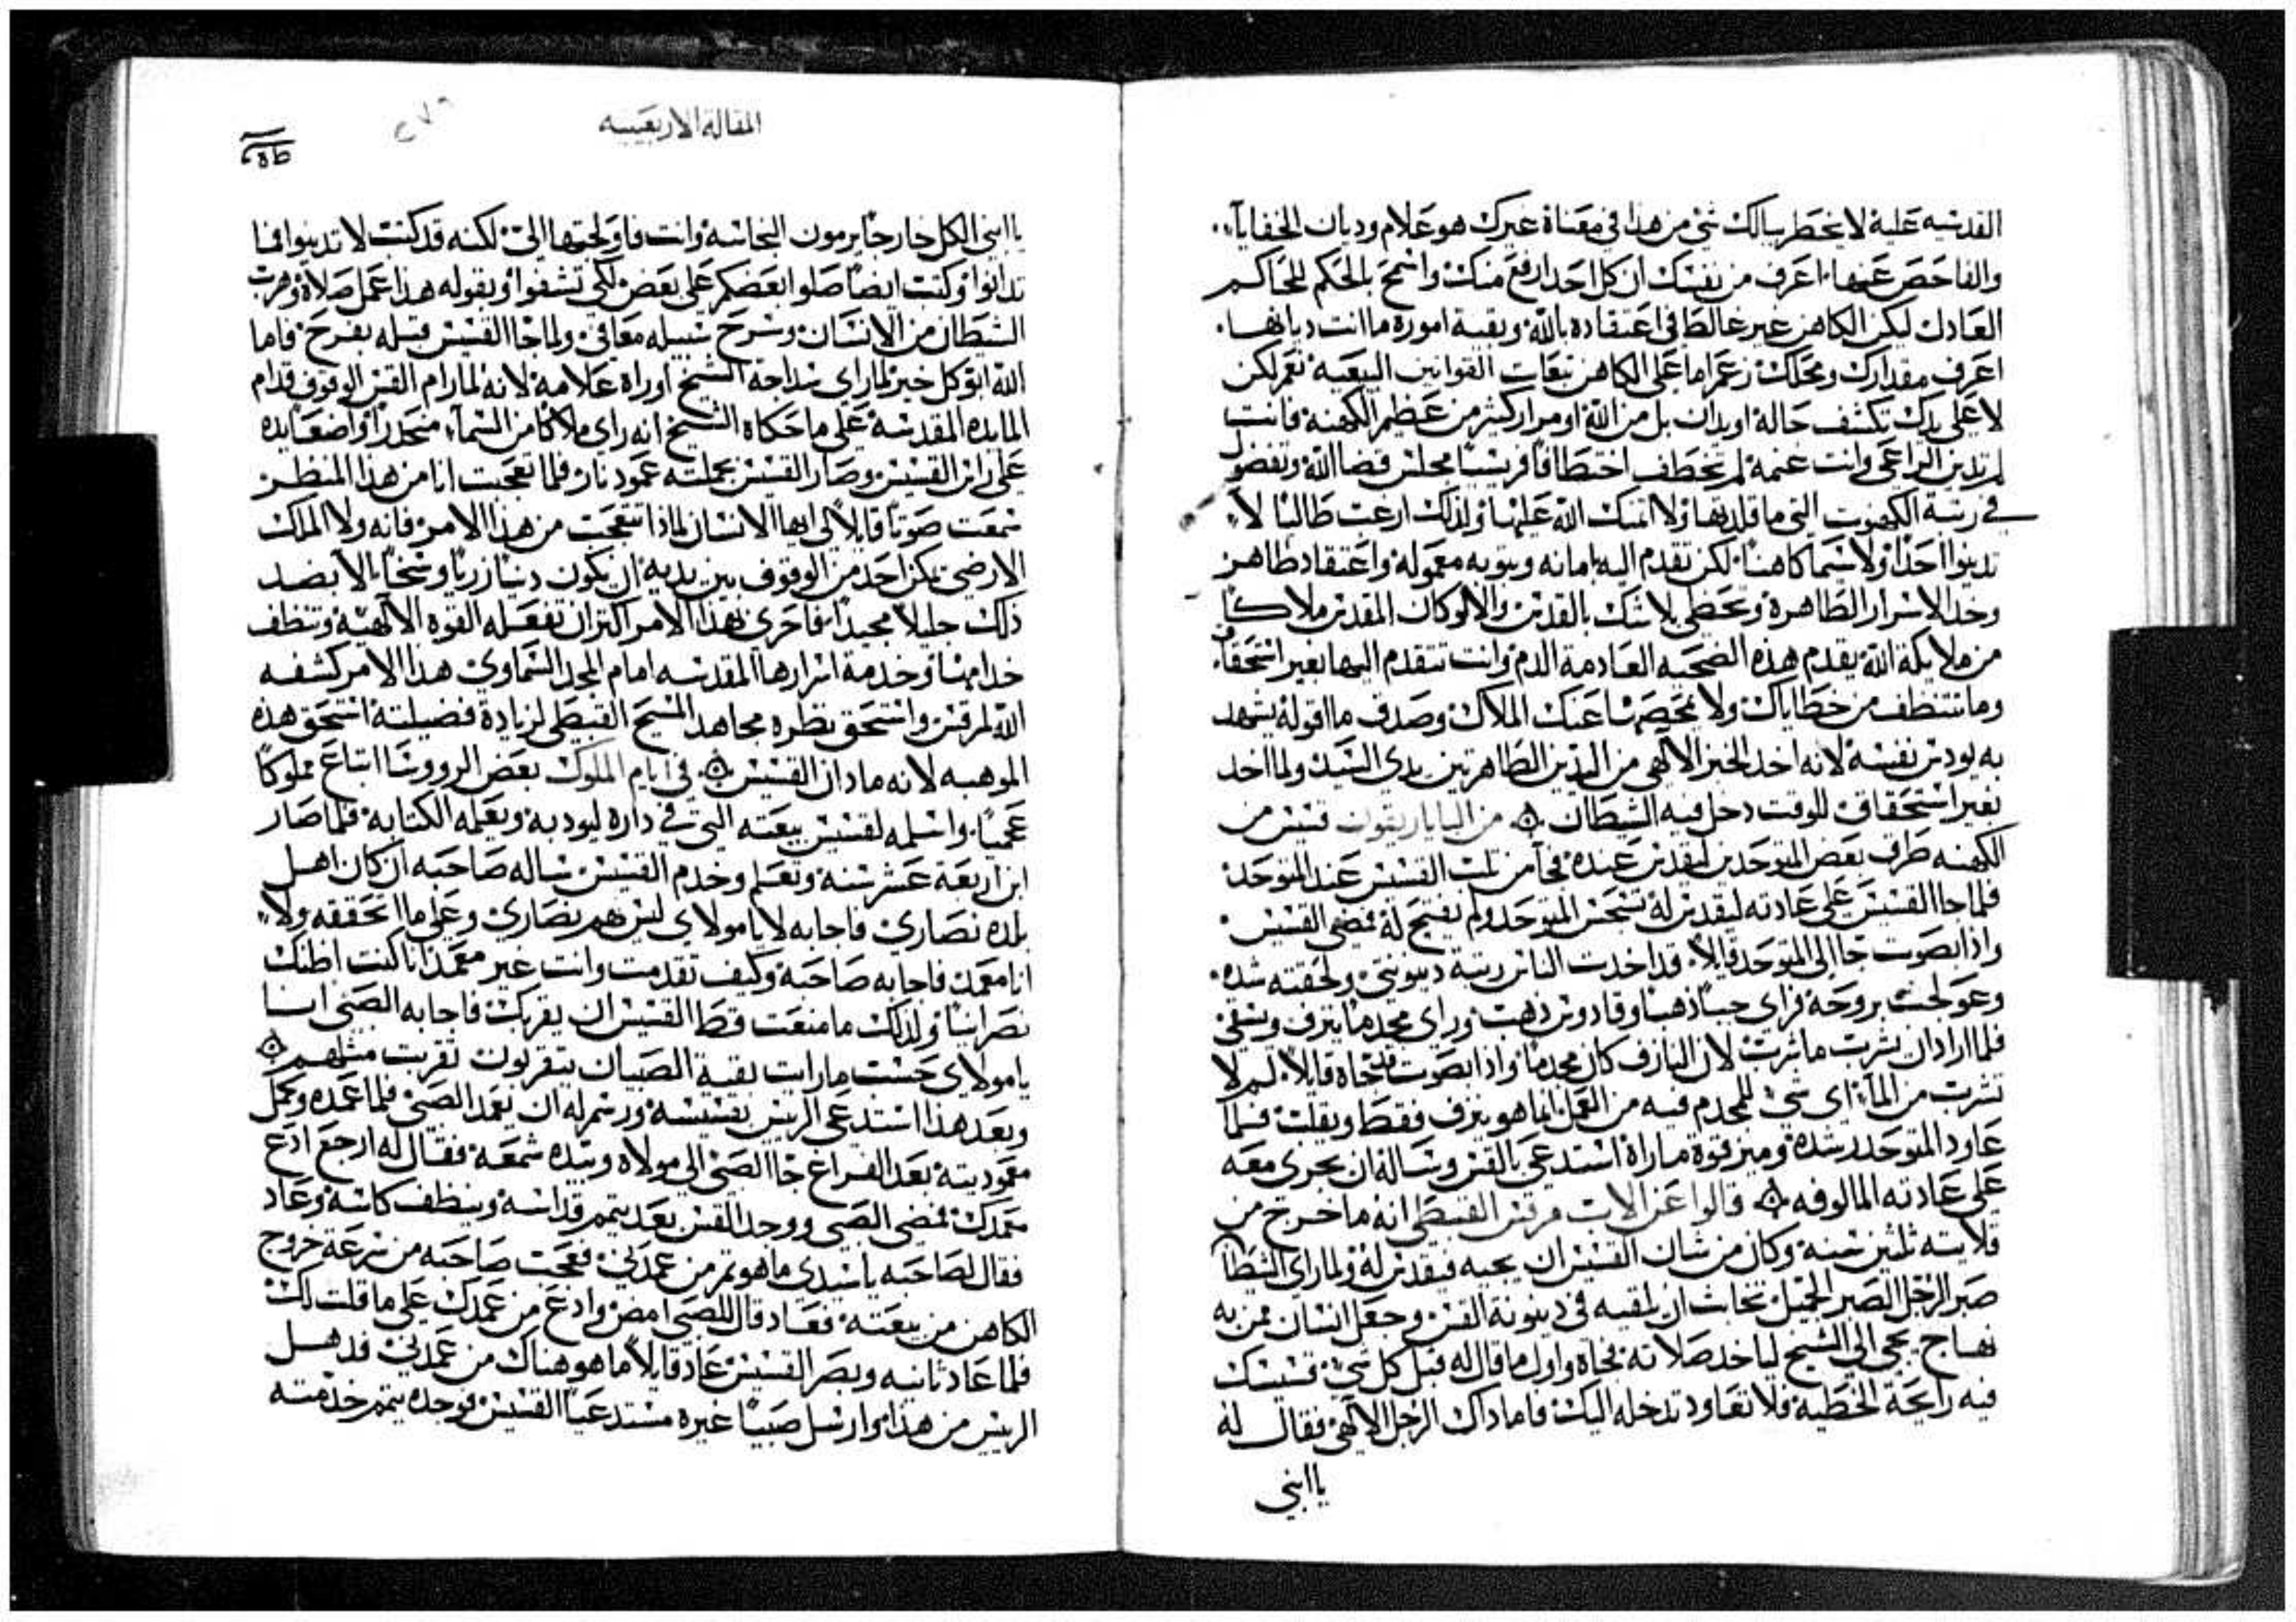 القدسيه عليه لا يخطر ببالك شي من هذا في معناة غيرك هو علام وديان الخفايآء.
والفاحص عنها. اعرف من نفسك ان كل احد ارفع منك واسمح بالحكم للحاكم
العادل لكن الكاهن غير غالط في اعتقاده بالله وبقية اموره ما انت ديانها.
اعرف مقدارك ومحلك زعم اما على الكاهن تبعات القوانين البيعيه نعم لكن
لا على يدك تكشف حالة او يدان بل من الله او من اركيثر من عظم الكهنه فانت
لم تدين الراعي وانت غنمه لم تخطف اختطافًا فريسيًا مجلس قضا الله وتفضول
في رتبة الكهنوت التي ما قلدتها ولا اتمنك الله عليها ولذلك ارعب طالبًا لا
تدينوا احدًا ولا سيما كاهنًا. لكن تقدم اليه بامانه وبتوبه معموله واعتقاد طاهر
وخد الاسرار الطاهرة وتحضى بلا شك بالقدس والا لو كان المقدس ملاكًا
من ملايكة الله يقدم هذه الضحيه العادمة الدم وانت تتقدم اليها بغير استحقاق
وما تتنظف من خطاياك ولا تمحيصها عنك الملاك وصدق ما اقوله يشهد
به لودس نفسه لانه اخد الخبز الالهي من اليدين الطاهرتين يدي السيد ولما اخد
بغير استحقاق للوقت دخل فيه الشيطان ۞ من الباباريقون قسيس من
الكهنه طرق بعض المتوحدين ليقدس عنده فجا من ثلب القسيس عند المتوحد
فلما جا القسيس على عادته ليقدس له تسجس المتوحد ولم يفتح له فمضى القسيس.
واذا بصوت جا الى المتوحد قايلًا. قد اخدت الناس رتبة دينونتي ولحقته شده.
وعولجت بروحه فراي جبًا ذهبًا وقادوس ذهب وراي مجدمًا ينزف ويسقي
فلما اراد ان يشرب ما شرب لان النازف كان مجدمًا. واذا بصوت فتجاه قايلًا. لم لا
تشرب من الماء اي شي للمجدم فيه من العمل انما هو ينزف فقط ويقلب فلما
عاود المتوحد رشده وميز قوة ما راه استدعى بالقس وساله ان يجري معه
على عادته المالوفه ۞ قالوا عن الاب مرقس القبطي انه ما خرج من
قلايته ثلثين سنه وكان من شان القسيس ان يجيه فيقدس له ولما راي الشيطان
صبر الرجل الصبر الجميل تخابث ان يلقيه في دينونة القس وجعل انسان ممن به
نهاج يجي الى الشيخ لياخد صلاته نجاة واول ما قال له قبل كل شي قسيسك
فيه رايحة الخطيه فلا تعاود تدخله اليك فاما داك الرجل الالهي فقال له
يا ابني
المقالة الاربعينيه
يا ابني الكل خارجًا يرمون النجاسه وانت فاولجتها الي لكنه قد كتب لا تدينوا فما
تدانوا وكتب ايضًا صلوا بعضكم على بعض لكي تشفوا وبقوله هذا عمل صلاة وهرب
الشيطان من الانسان وسرح سبيله معافى ولما جا القسيس قبله بفرح فاما
الله ابو كل خير لما راي سداجة الشيخ اوراه علامه لانه لما رام القس الوقوف قدام
المايده المقدسه على ما حكاه الشيخ انه راي ملاكًا من السماء منحدرًا واضعًا يده
على راس القسيس وصار القسيس بجملته عمود نار فلما تعجبت انا من هذا المنظر
سمعت صوتًا قايلًا لي ايها الانسان لماذا تتعجب من هذا الامر فانه ولا الملك
الارضي يكن احد من الوقوف بين يديه ان يكون دنسًا زريًا وسخًا. الا بضد
ذلك جليلًا مجيدًا فاحرى بهذا الامر اكثر ان تفعله القوه الالهيه وتنظف
خدامها وخدمة اسرارها المقدسه امام المجد السماوي هذا الامر كشفه
الله لمرقس واستحق نظره مجاهد المسيح القبطي لزيادة فضيلته استحق هذه
الموهبه لانه ما دان القسيس ۞ في ايام الملوك بعض الرووسا ابتاع مملوكًا
عجميًا. واسلمه لقسيس بيعته التي في داره ليودبه ويعلمه الكتابه فلما صار
ابن اربعة عشر سنه وتعلم وخدم القسيس ساله صاحبه ان كان اهل
بلده نصارى فاجابه لا يا مولاي ليس هم نصارى وعلى ما اتحققه ولا
انا معمد فاجابه صاحبه وكيف تقدمت وانت غير معمد انا كنت اظنك
نصرانيًا ولذلك ما منعت قط القسيس ان يقربك فاجابه الصبي انا
يا مولاي حسب ما رايت بقية الصبيان يتقربون تقربت مثلهم ۞
وبعد هذا استدعى الريس بقسيسه ورسم له ان يعمد الصبي فلما عمده وكمل
معموديته بعد الفراغ جا الصبي الى مولاه وبيده شمعه فقال له ارجع ادع
معمدك فمضى الصبي ووجد القس بعد يتمم قداسه وينظف كاسه وعاد
فقال لصاحبه يا سيدي ما هو ثم من عمدني فعجب صاحبه من سرعة خروج
الكاهن من بيعته فعاد قال للصبي امض وادع من عمدك على ما قلت لك
فلما عاد ثانيه وبصر القسيس عاد قايلًا ما هو هناك من عمدني فدهل
الريس من هذا وارسل صبيًا غيره مستدعيًا القسيس فوجده يتمم خدمته